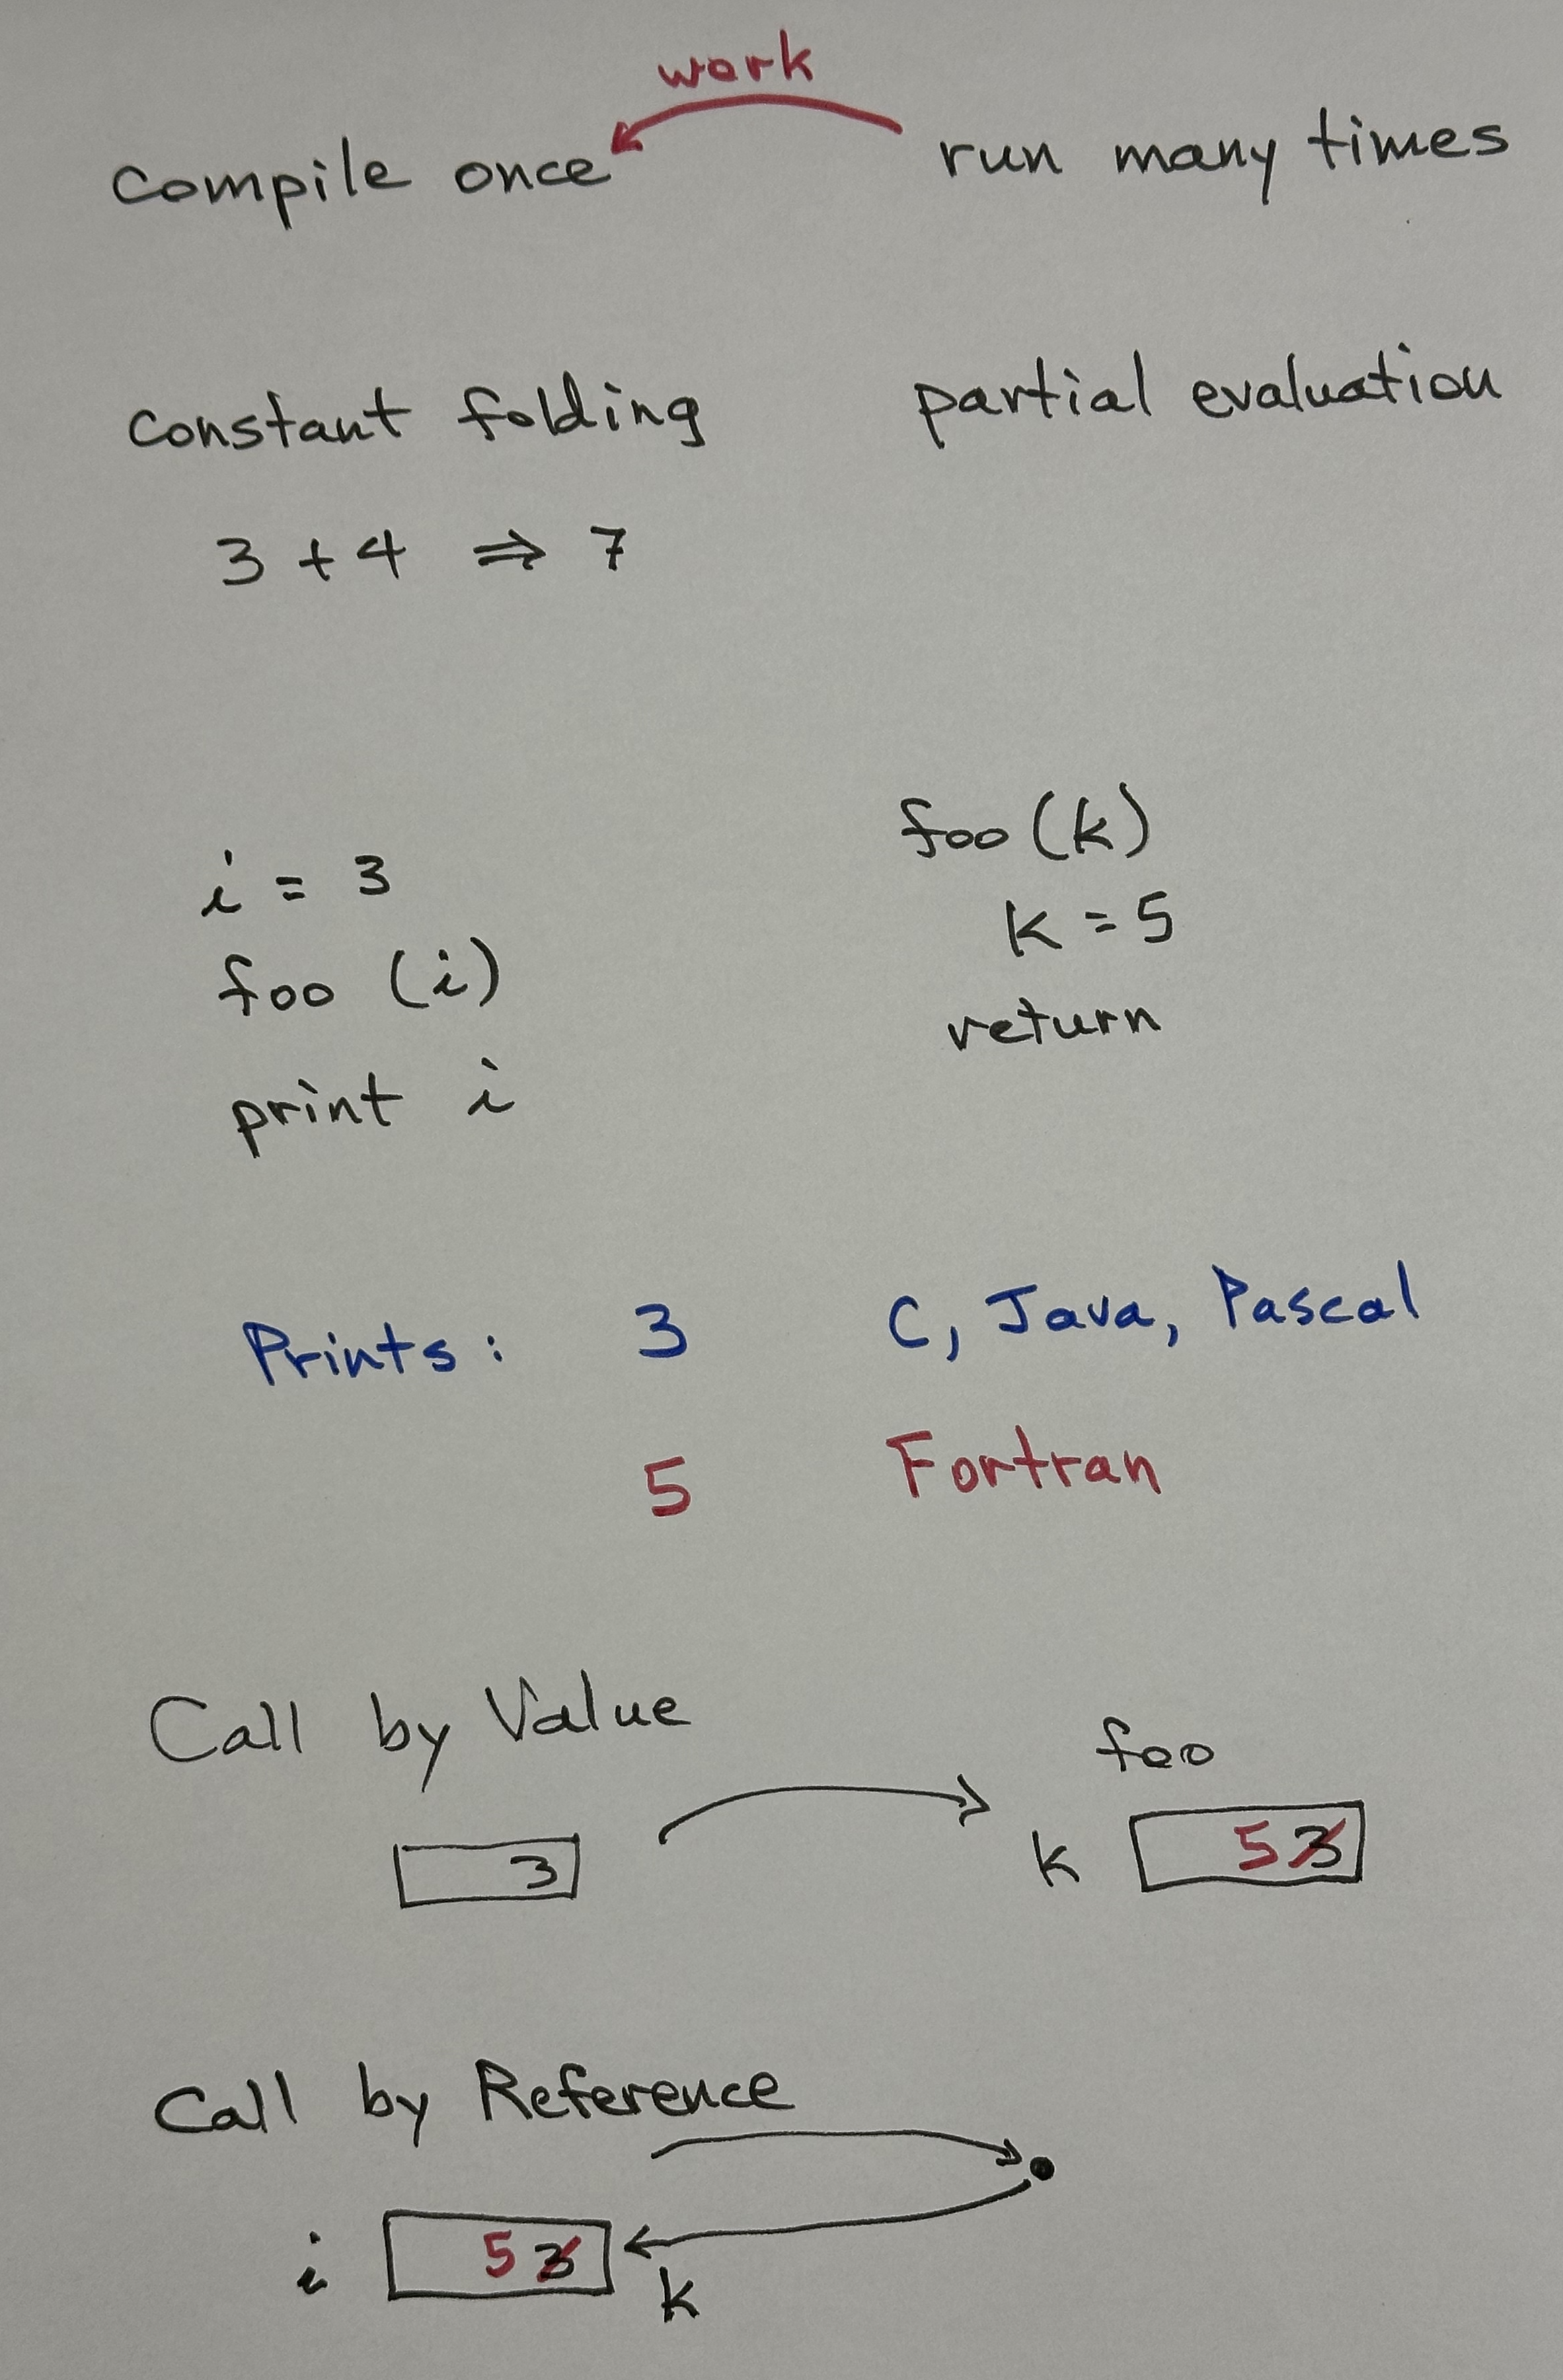 work
compile once run many times
constant folding partial evaluation
3 + 4 ⇒ 7
i = 3
foo (i)
print i
foo (k)
k = 5
return
Prints: 3 C, Java, Pascal
5 Fortran
Call by Value
foo
3 k 5 3
Call by Reference
i 5 3 k